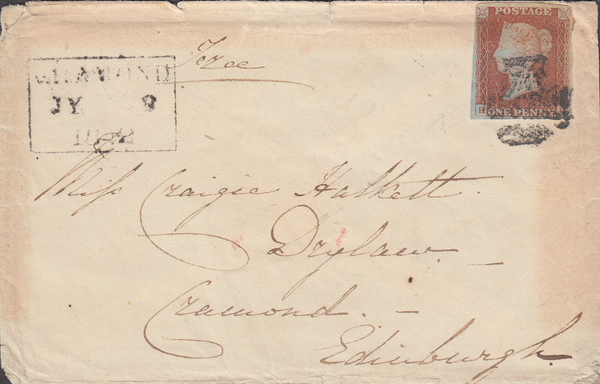 Free
POSTAGE
CRAMOND
JY 9
1842
ONE PENNY
Miss Craigie Halkett.
Drylaw.
Cramond. -
Edinburgh.